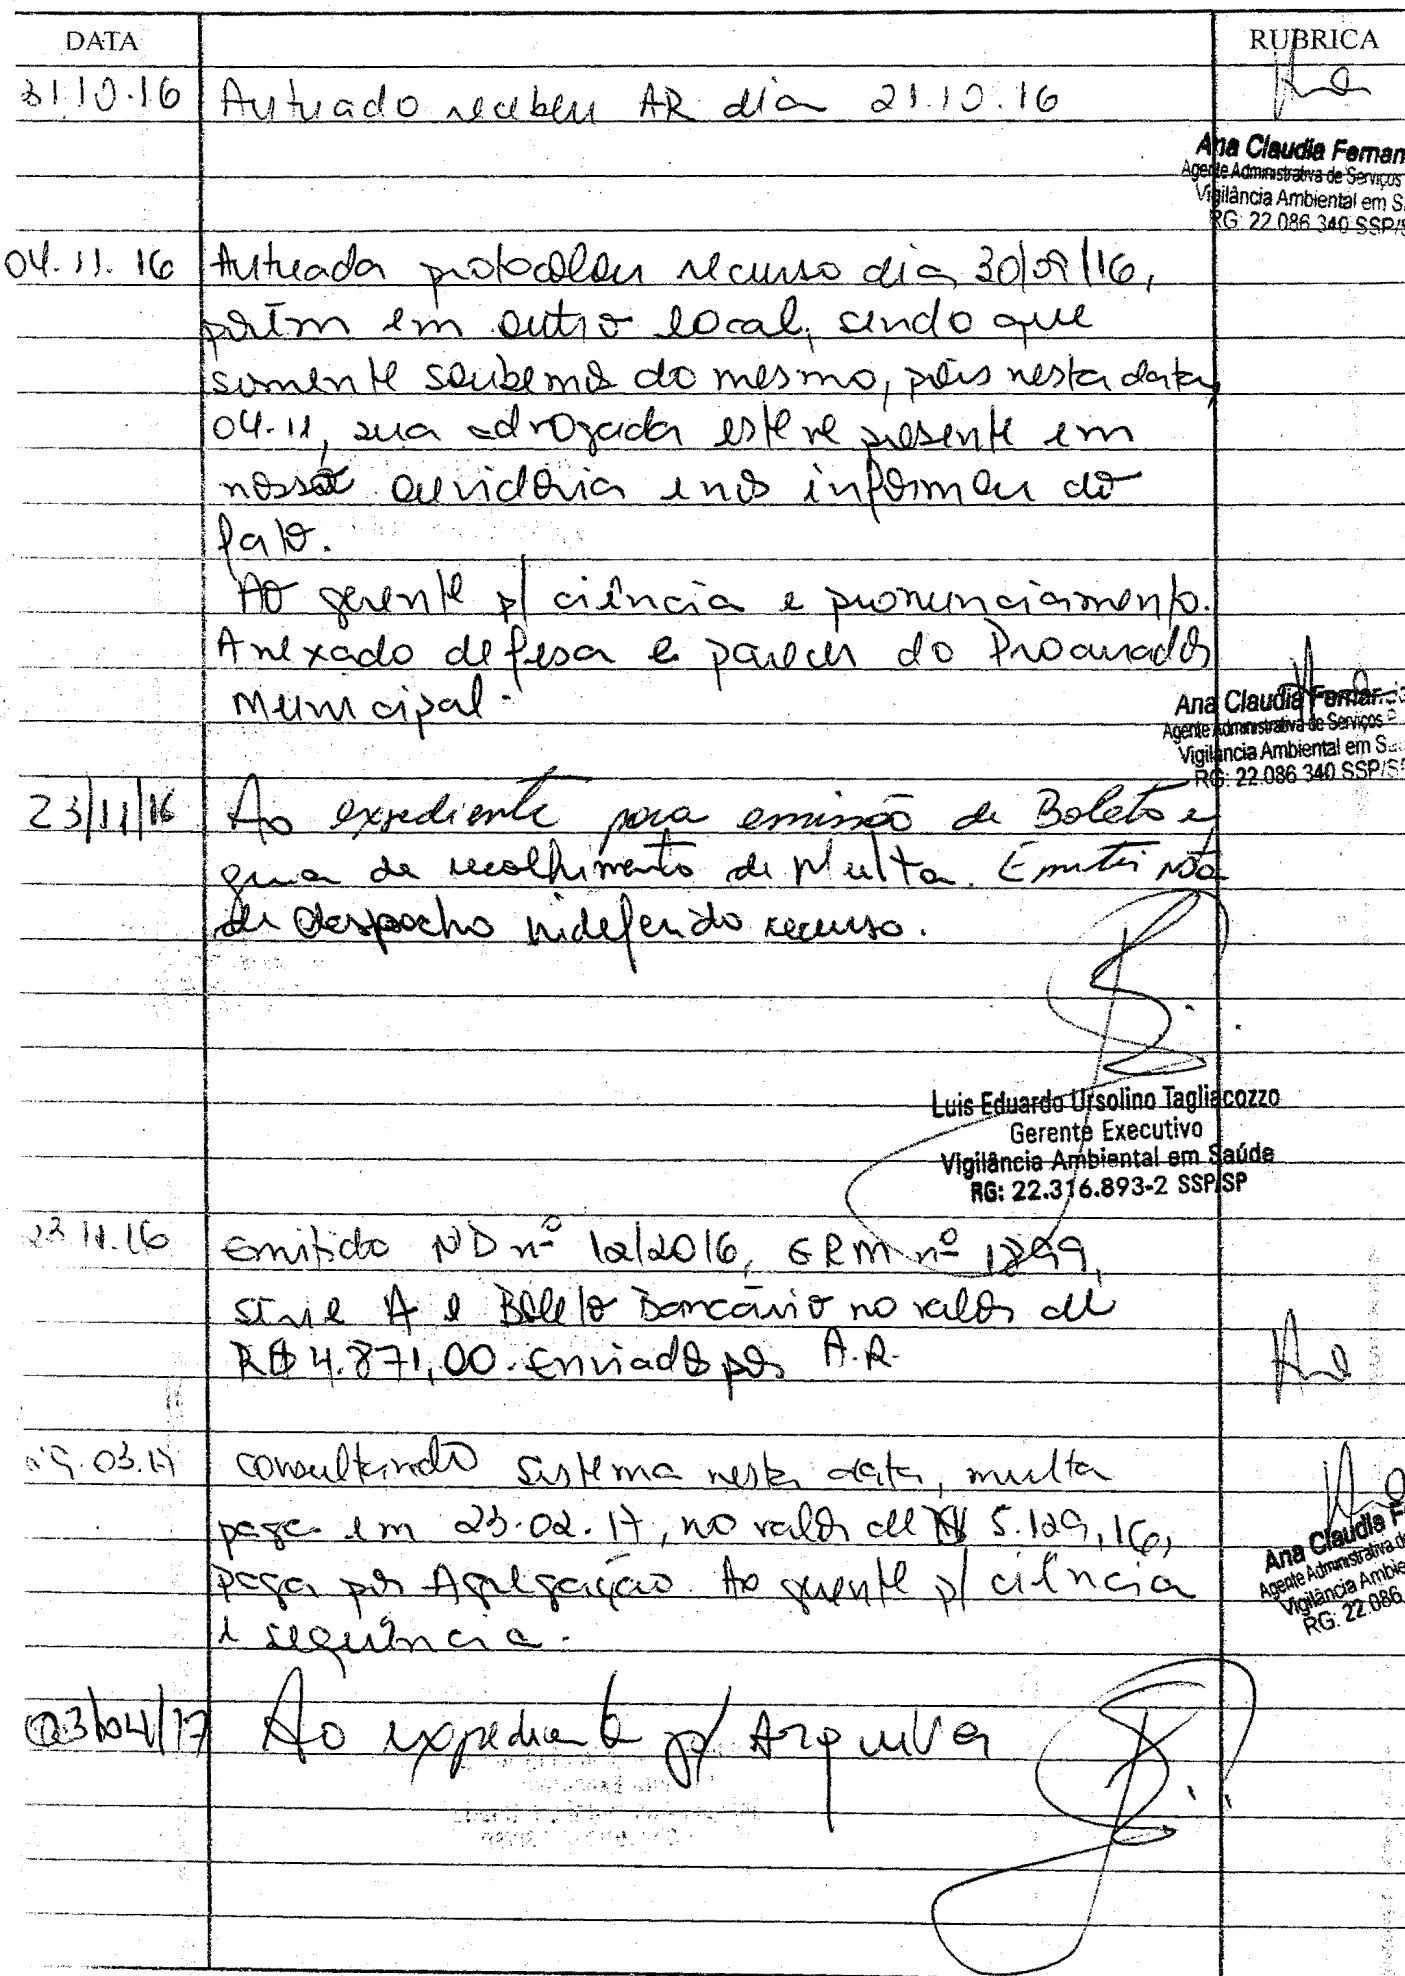 DATA RUBRICA
31.10.16 Autuado recebeu AR dia 21.10.16
Ana Claudia Fernan
Agente Administrativa de Serviços
Vigilância Ambiental em S
RG: 22.086.340 SSP/S
04.11.16 Autuada protocolou recurso dia 30/09/16,
porém em outro local, sendo que
somente soubemos do mesmo, pois nesta data,
04.11, sua advogada esteve presente em
nossa ouvidoria e nos informou do
fato.
Ao gerente p/ ciência e pronunciamento.
Anexado defesa e parecer do Procurador
Municipal.
Ana Claudia Fernan
Agente Administrativa de Serviços
Vigilância Ambiental em S
RG: 22.086.340 SSP/S
23/11/16 Ao expediente para emissão de Boleto e
guia de recolhimento de Multa. Emitir
de despacho indeferido recurso.
Luis Eduardo Ursolino Tagliacozzo
Gerente Executivo
Vigilância Ambiental em Saúde
RG: 22.316.893-2 SSP/SP
23.11.16 Emitido ND nº 12/2016, GRM nº 1899,
série A e Boleto Bancário no valor de
R$ 4.871,00. Enviado por A.R.
03.17 consultando sistema nesta data, multa
paga em 23.02.17, no valor de R$ 5.129,16,
paga por Agregação. Ao gerente p/ ciência
e sequência.
Ana Claudia F
Agente Administrativa de
Vigilância Ambie
RG: 22.086.
03/04/17 Ao expediente p/ Arquivar